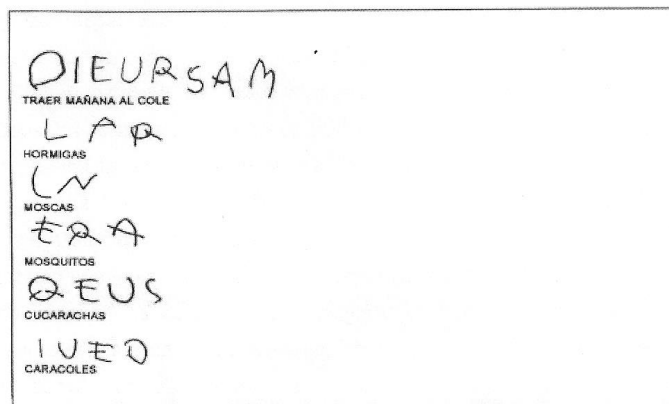 OIEURSAM
TRAER MAÑANA AL COLE
LAR
HORMIGAS
LN
MOSCAS
ERA
MOSQUITOS
QEUS
CUCARACHAS
IUEO
CARACOLES